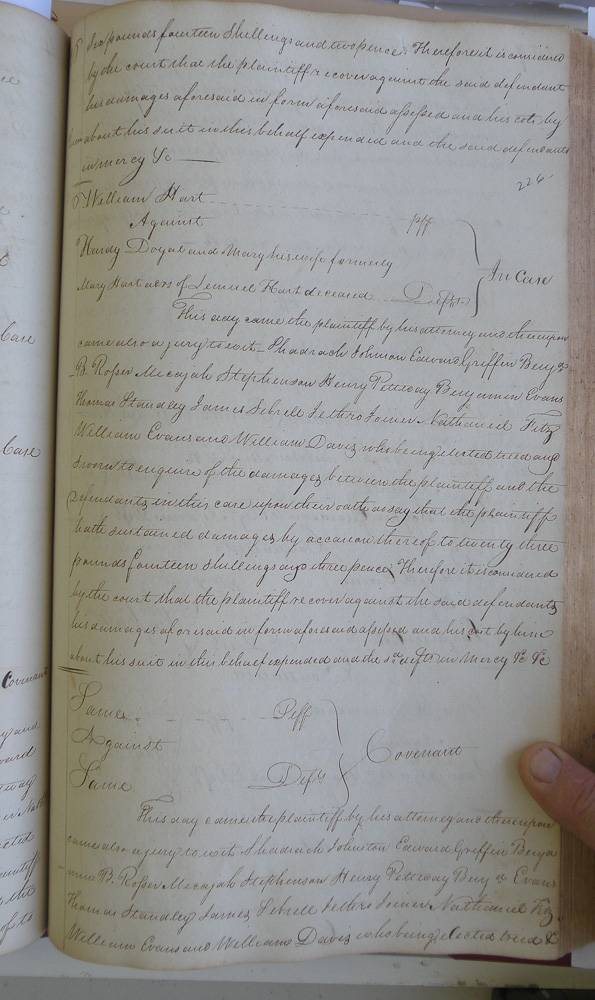 Six pounds fourteen Shillings and two pence. Therefore it is considered
by the court that the plaintiff recover against the said defendant
his damages aforesaid in form aforesaid assessed and his costs by
him about his suit in this behalf expended and the said defendants
in mercy &c
226
William Hart
Against Plff
Hardy Doyal and Mary his wife formerly
In Case
Mary Hart admrs of Lemuel Hart deceased Defts
This day came the plaintiff by his attorney and thereupon
came also a jury to wit Shadrach Johnson Edward Griffin Benja
B. Rosser Mecajah Stephenson Henry Peteway Benjamin Evans
Thomas Standley James Sebrell Jethro Joiner Nathaniel Fitz
William Evans and William Davis who being elected tried and
sworn to enquire of the damages between the plaintiff and the
Defendants in this case upon their oaths say that the plaintiff
hath sustained damages by accasion thereof to twenty three
pounds fourteen Shillings and three pence. Therefore it is considered
by the court that the plaintiff recover against the said defendants
his damages aforesaid in form aforesaid assessed and his cost by him
about his suit in this behalf expended and the sd. defts in Mercy &c &c
Same Plff
Against
Covenant
Same Defts
This day came the plaintiff by his attorney and thereupon
came also a jury to wit Shadrach Johnston Edward Griffin Benja
min B. Rosser Mecajah Stephenson Henry Peteway Benj a Evans
Thomas Standley James Sebrell Jethro Joiner Nathaniel Fitz
William Evans and William Davis who being elected tried &
Case
Case
Covenant